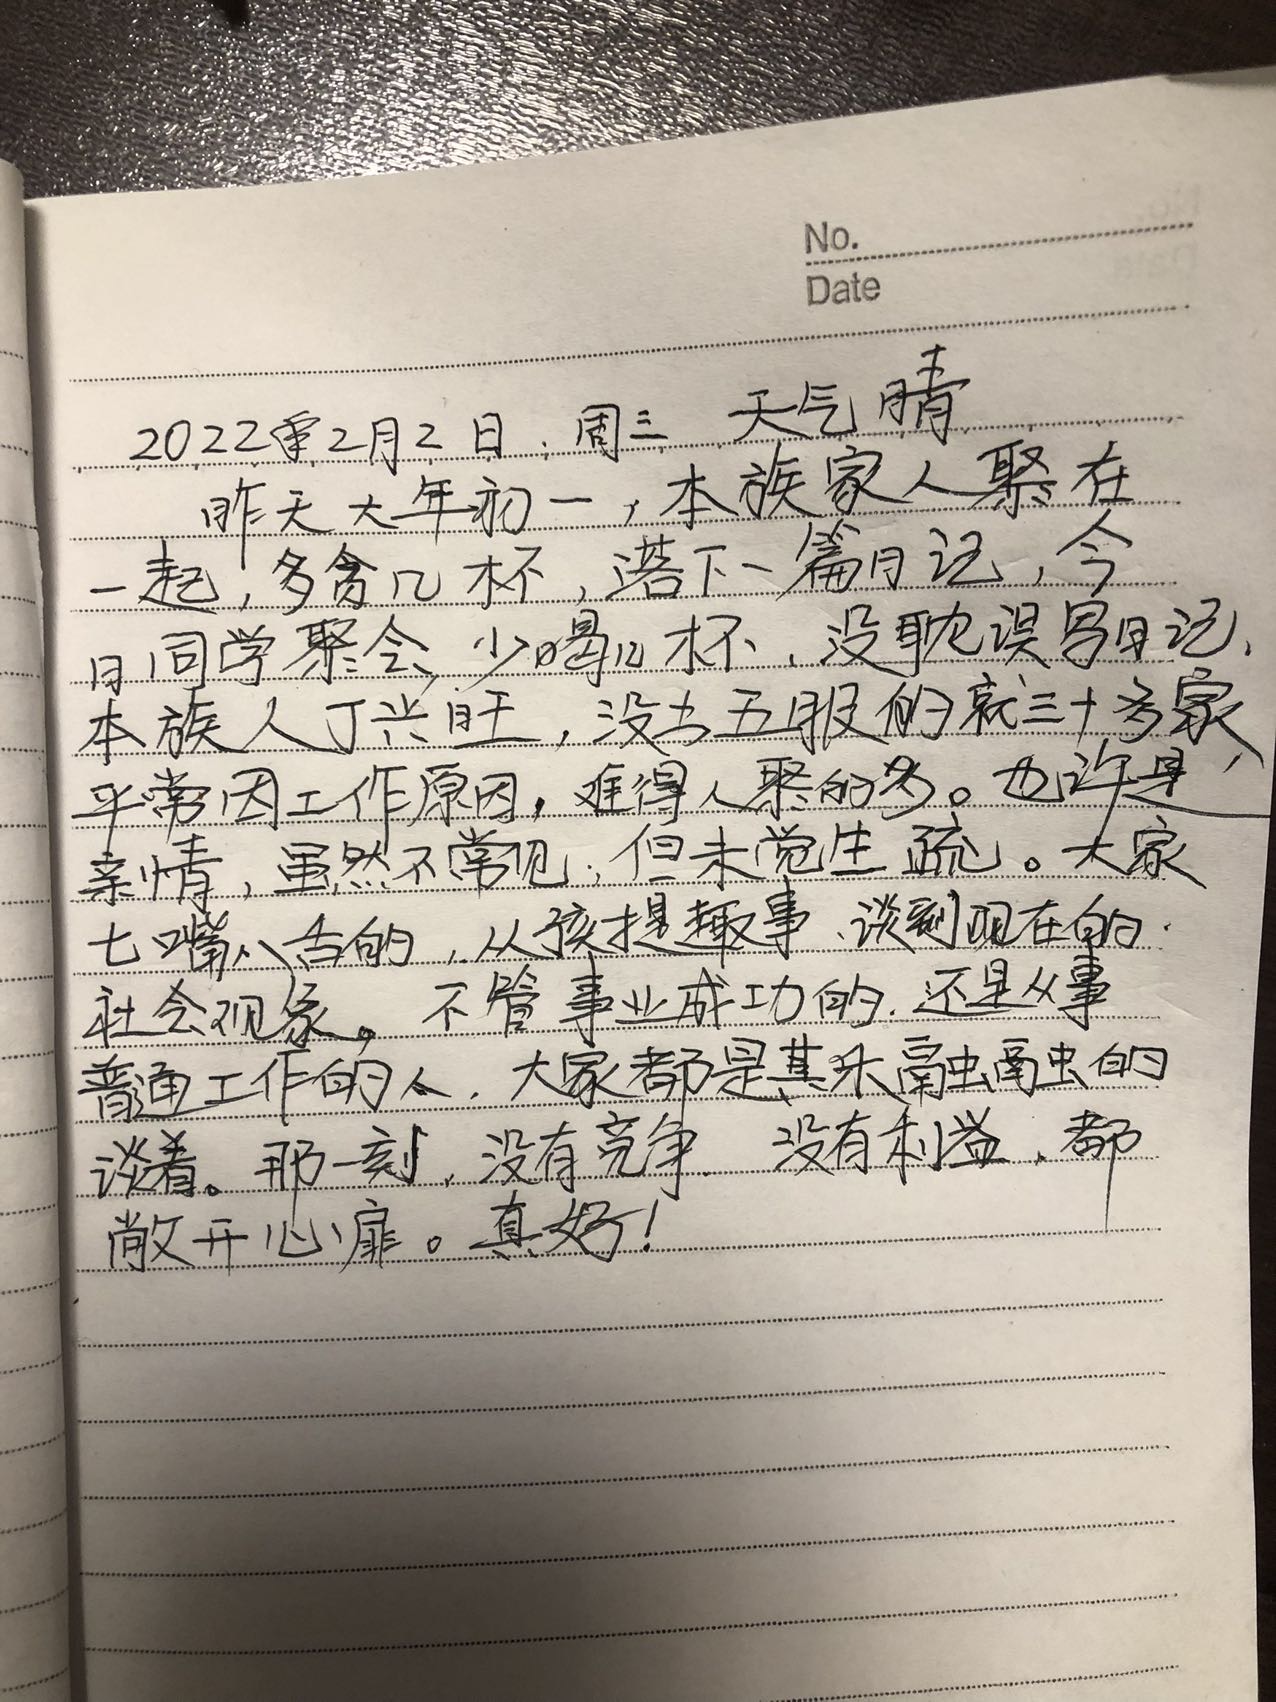 No.
Date
2022年2月2日.周三 天气晴
昨天大年初一，本族家人聚在
一起，多贪几杯，落下一篇日记，今
日同学聚会，少喝几杯、没耽误写日记、
本族人丁兴旺，没出五服的就三十多家，
平常因工作原因，难得人聚的多。也许是
亲情，虽然不常见，但未觉生疏。大家
七嘴八舌的，从孩提趣事、谈到现在的
社会现象。不管事业成功的.还是从事
普通工作的人.大家都是其乐融融的
谈着。那一刻，没有竞争.没有利益、都
敞开心扉。真好！